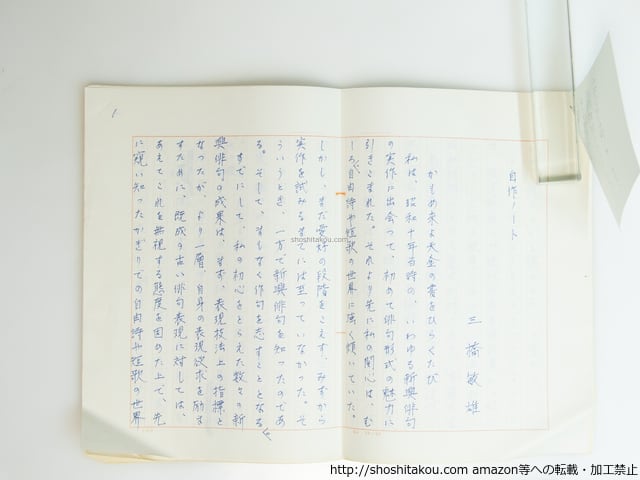 自作ノート
三橋敏雄
かもめ来よ天金の書をひらくたび
私は、昭和十年当時の、いわゆる新興俳句
の実作に出会つて、初めて俳句形式の魅力に
引きこまれた。それより先に私の関心は、む
しろ自由詩や短歌の世界に強く傾いていた。
しかし、まだ愛好の段階をこえず、みずから
実作を試みるまでには至っていなかった。そ
ういうとき、一方で新興俳句を知ったのであ
る。そして、まもなく作句を志すこととなる。
すでにして、私の初心をとらえた数々の新
興俳句の成果は、まず、表現技法上の指標と
なつたが、より一層、自身の表現欲求を励ま
すために、既成の古い俳句表現に対しては、
あえてこれを無視する態度を固めた上で、先
に窺い知ったかぎりでの自由詩や短歌の世界
shoshitakou.com
http://shoshitakou.com amazon等への転載・加工禁止